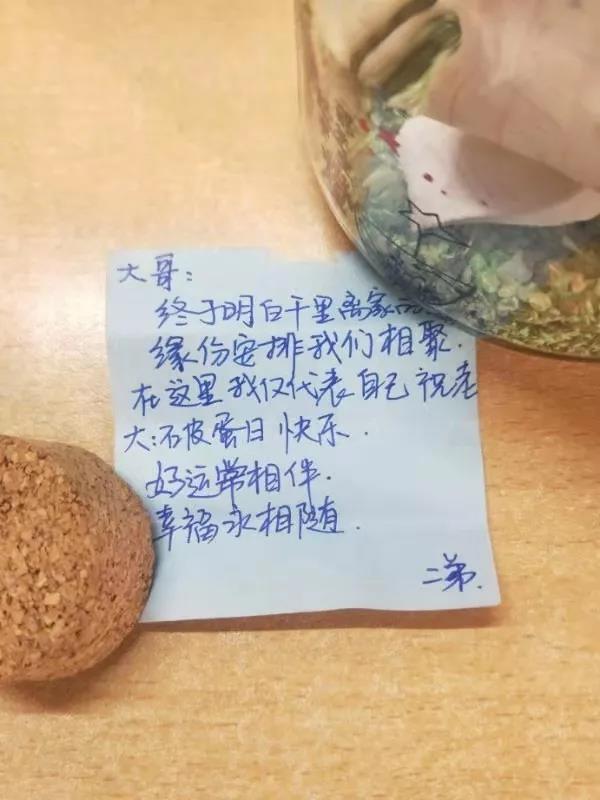 大哥:
终于明白千里离家
缘份安排我们相聚.
在这里我仅代表自己祝老
大:石皮蛋日快乐.
好运常相伴.
幸福永相随.
二弟.